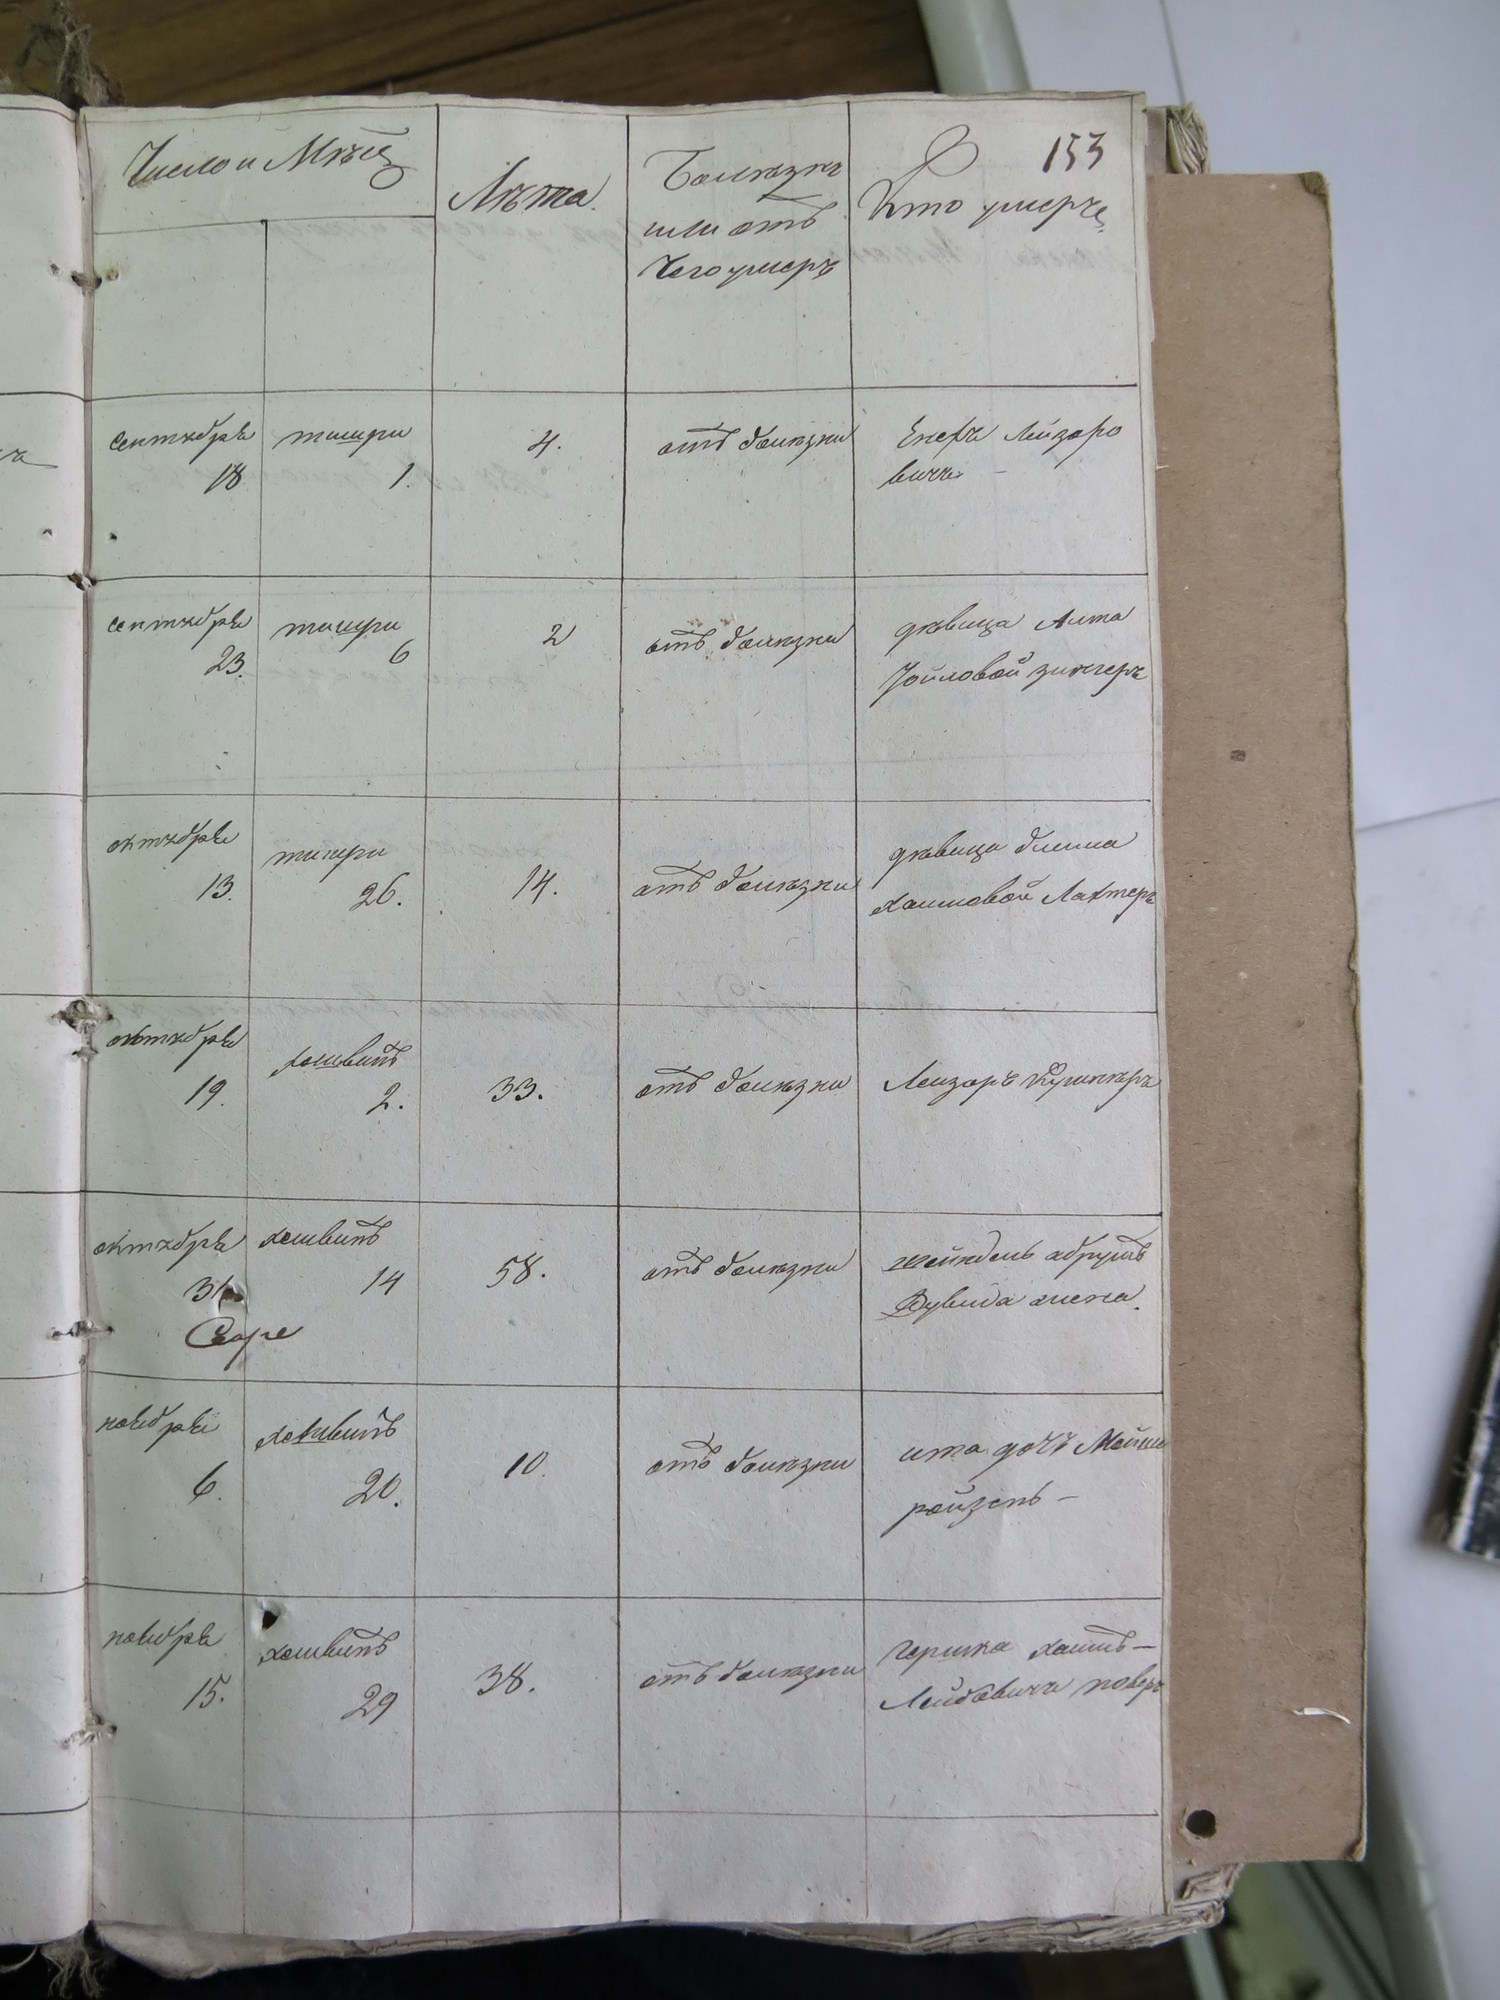 153
Число и Мѣсц
Лѣта.
Болѣзнь
или отъ
чего умеръ
Кто умеръ
сентября
18
тишри
1.
4.
отъ болѣзни
Лейзоро
вичъ –
сентября
23.
тишри
6
2
отъ болѣзни
дѣвица Алта
Іойловой зингеръ
октября
13.
тишри
26.
14.
отъ болѣзни
дѣвица блима
хаимовой Лахтеръ
октября
19.
хешвинъ
2.
33.
отъ болѣзни
Лейзоръ Кушниръ
октября
31
хешвинъ
14
58.
отъ болѣзни
шейндель
Дувида жена.
ноября
6.
хешвинъ
20.
10.
отъ болѣзни
ита дочъ
ройзенъ –
ноября
15.
хешвинъ
29
38.
отъ болѣзни
гершко хаимъ –
Лейбовичъ поверъ